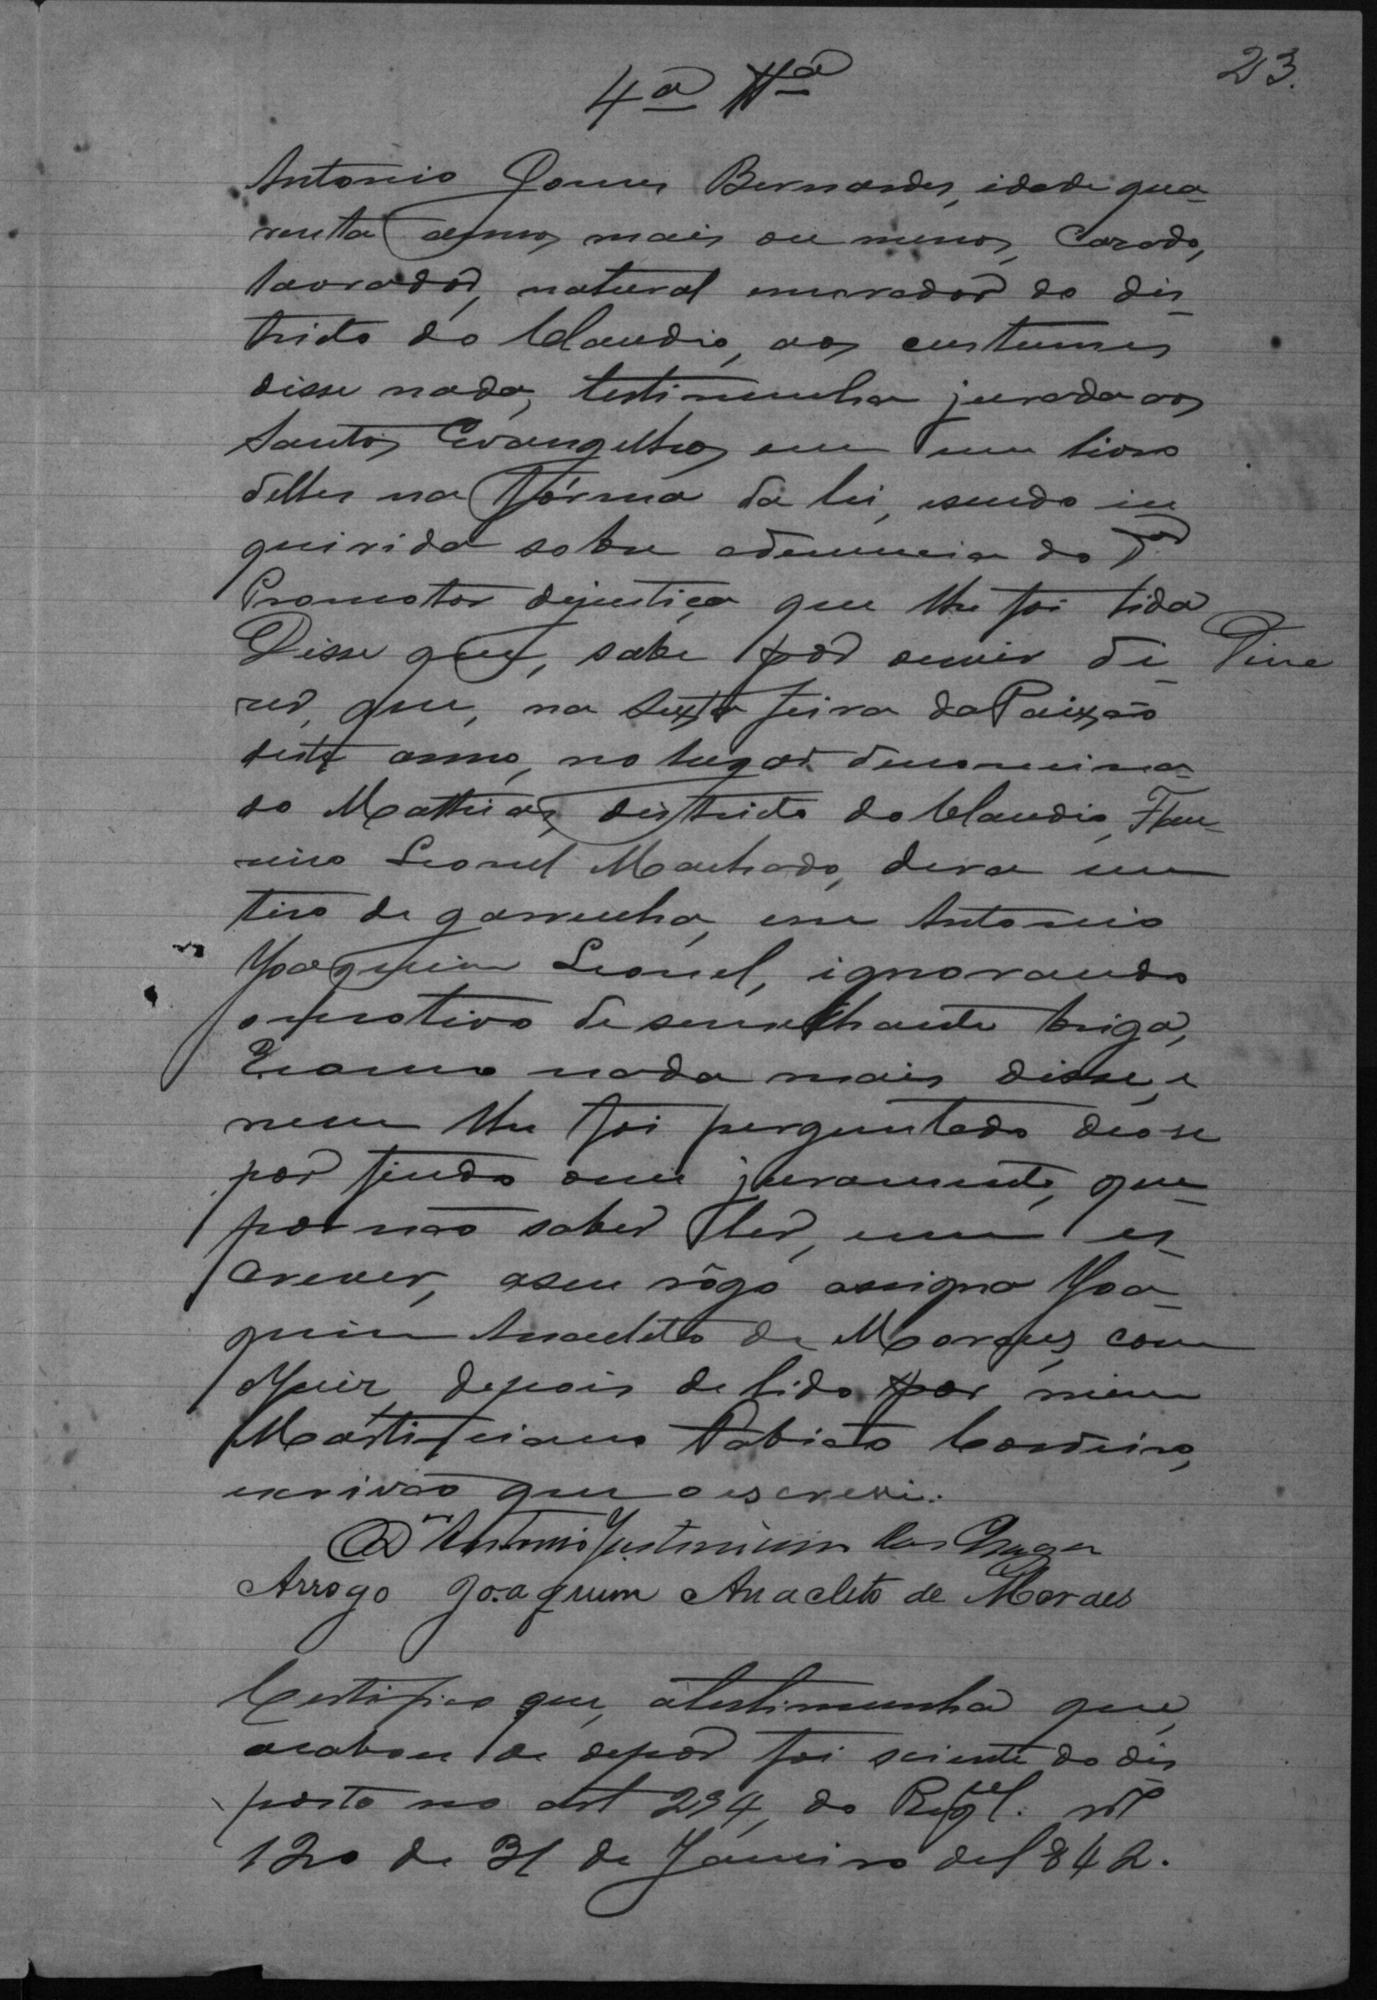 23.
4ª Ttª
Antonio Gomes Bernardes, idade qua-
renta annos mais ou menos, Casado,
lavrador, natural emorador do dis-
tricto do Claudio, aos custumes
disse nada, testimunha jurada aos
Santos Evangelhos em um livro
delles na fórma da lei, esendo in
quirida sobre adenuncia do Dor
Promotor dejustiça que lhe foi lida
Disse que, sabe por ouvir di- Disse
zer, que, na Sexta feira da Paixão
deste anno, no lugar denomina-
do Mathias, districto do Claudio, Fir-
mino Leonel Machado, dera um
tiro de garrucha, em Antonio
Joaquim Leonel, ignorando
omotivo de semelhante briga,
Ecomo nada mais disse, e
nem lhe foi perguntado deose
por findo este juramento, que
por não saber ler, nem es-
crever, aseu rôgo assigna Joa-
quim Anacleto de Moraes, com
oJuiz, depois de lido por mim
Cordeiro,
escrivão que oescrevi.
Antonio
Arrogo Joaquim Anacleto de Moraes
Certifico que, atestimunha que
acabou de depor foi sciente do dis
posto no art 294, do Regul. nº
120 de 31 de Janeiro de1842.